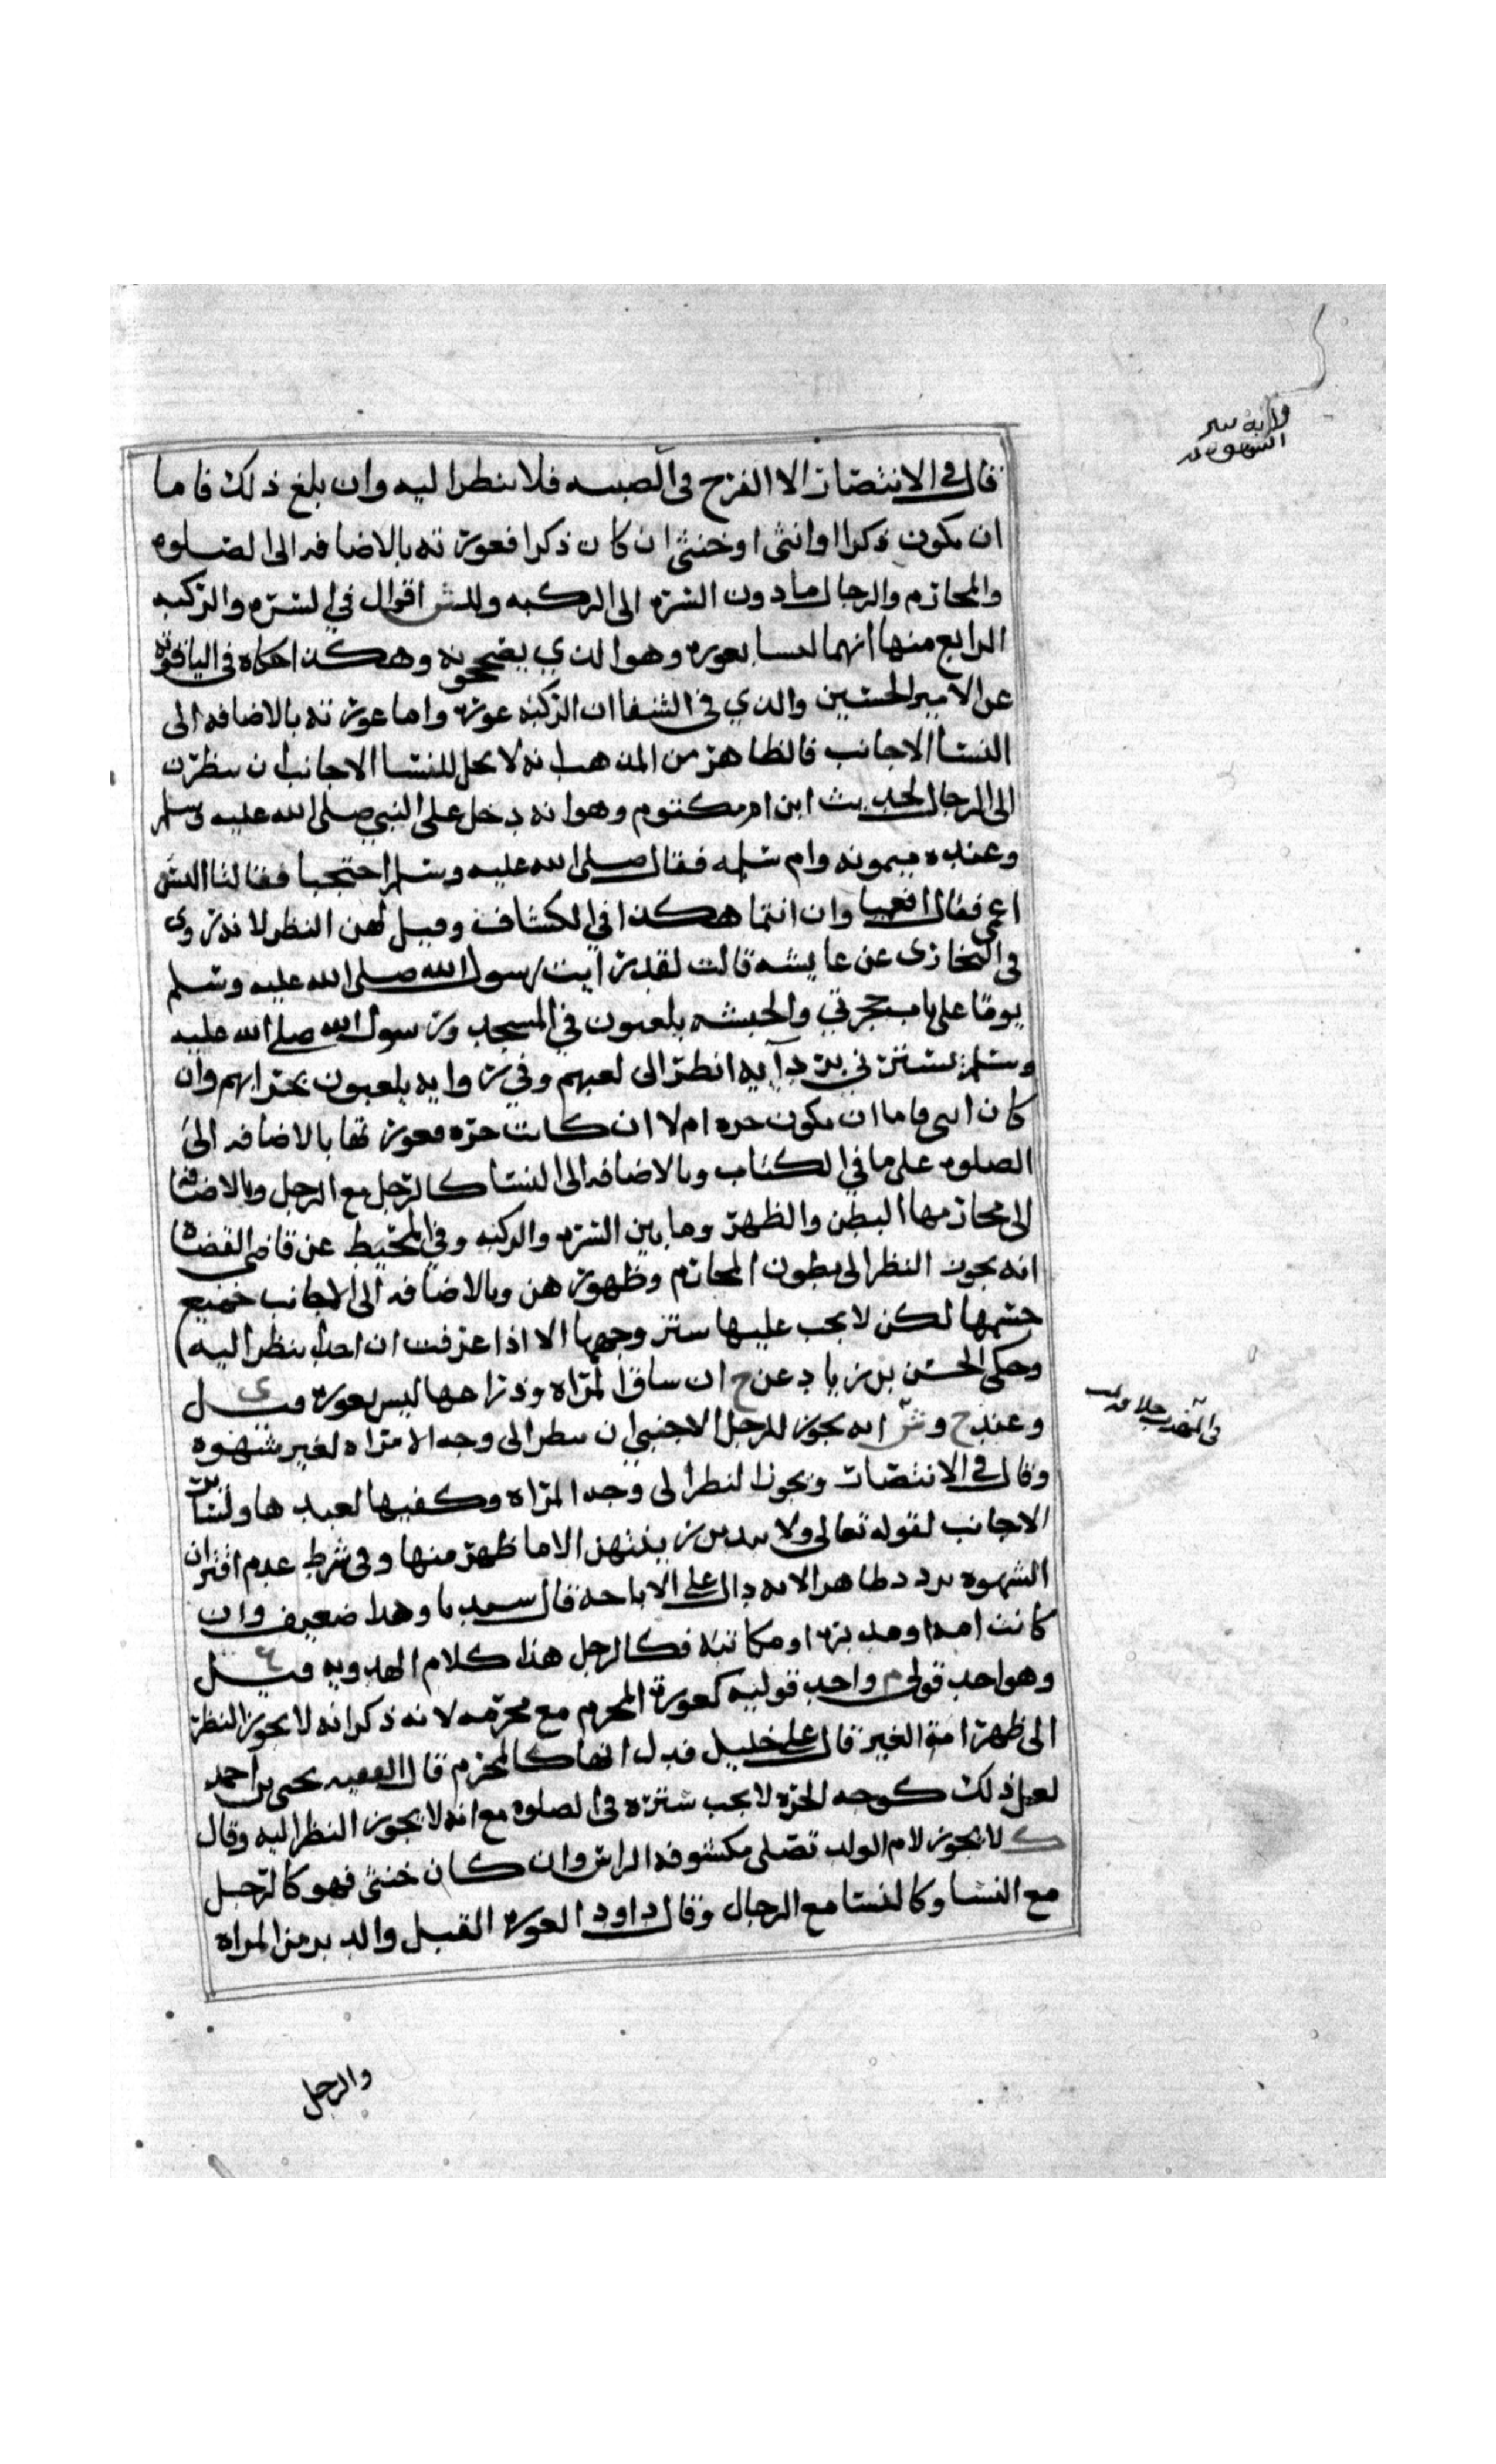 قال في الانتصار الا الفرج في الصبيه فلا ينظر اليه وان بلغ ذلك فاما
ان يكون ذكرا او انثى او خنثى ان كان ذكرا فعورته بالاضافه الى الصلوه
والمحارم والرجال ما دون السره الى الركبه وللش اقوال في السره والركبه
الرابع منها انهما ليسا بعوره وهو الذي يصححونه وهكذا حكاه في الياقوته
عن الامير الحسين والذي في الشفا ان الركبه عوره واما عورته بالاضافه الى
النسا الاجانب فالظاهر من المذهب انه لا يحل للنسا الاجانب ان ينظرن
الى الرجال لحديث ابن ام مكتوم وهو انه دخل على النبي صلى الله عليه وسلم
وعنده ميمونه وام سلمه فقال صلى الله عليه وسلم احتجبا فقالتا اليس
اعمى فقال افعميا وان انتما هكذا في الكشاف وقيل لهن النظر لانه روى
في البخارى عن عايشه قالت لقد رايت رسول الله صلى الله عليه وسلم
يوما على باب حجرتي والحبشه يلعبون في المسجد ورسول الله صلى الله عليه
وسلم يسترني بردآيه انظر الى لعبهم وفي روايه يلعبون بحرابهم وان
كان انثى فاما ان يكون حره ام لا ان كانت حره فعورتها بالاضافه الى
الصلوه على ما في الكتاب وبالاضافه الى النسا كالرجل مع الرجل وبالاضافه
الى محارمها البطن والظهر وما بين السره والركبه وفي المحيط عن قاضي القضاه
انه يجوز النظر الى بطون المحارم وظهورهن وبالاضافه الى الاجانب جميع
جسمها لكن لا يجب عليها ستر وجهها الا اذا عرفت ان احدا ينظر اليه
وحكى الحسن بن زياد عن ح ان ساق المراه وذراعها ليس بعوره قيل ي
وعند ح وش انه يجوز للرجل الاجنبي ان ينظر الى وجه الامراه لغير شهوه
وقال في الانتصار ويجوز النظر الى وجه المراه وكفيها لعبدها ولسائر
الاجانب لقوله تعالى ولا يبدين زينتهن الا ما ظهر منها وفي شرط عدم اقتران
الشهوه تردد ظاهر الايه دال على الاباحه قال سيدنا وهذا ضعيف وان
كانت امه او مدبره او مكاتبه فكالرجل هذا كلام الهدويه قيل ع
وهو احد قولي م واحد قوليه كعورة المحرم مع محرمه لانه ذكر انه لا يجوز النظر
الى ظهر امة الغير قال على خليل فدل انها كالمحرم قال الفقيه يحيى بن احمد
لعل ذلك كوجه الحره لا يجب ستره في الصلوه مع انه لا يجوز النظر اليه وقال
ك لا يجوز لام الولد تصلى مكشوفه الراس وان كان خنثى فهو كالرجل
مع النسا وكالنسا مع الرجال وقال داود العوره القبل والدبر من المراه
والرجل